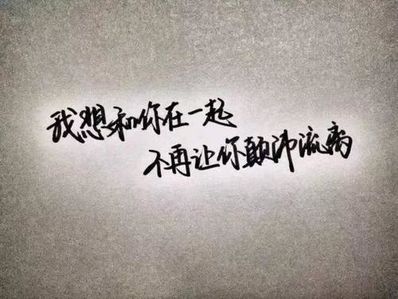 我想和你在一起
不再让你颠沛流离